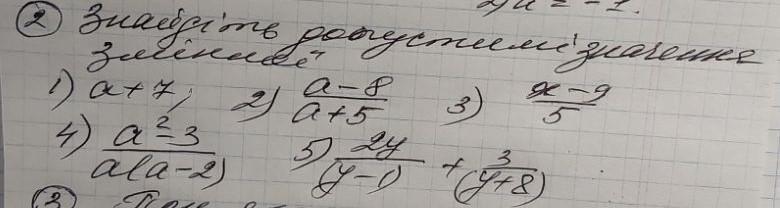 2) a = -1.
② Знайдіть допустимі значення
змінної
1) a+7; 2) (a-8)/(a+5) 3) (x-9)/5
4) (a²-3)/(a(a-2)) 5) 2y/(y-1) + 3/(y+8)
③